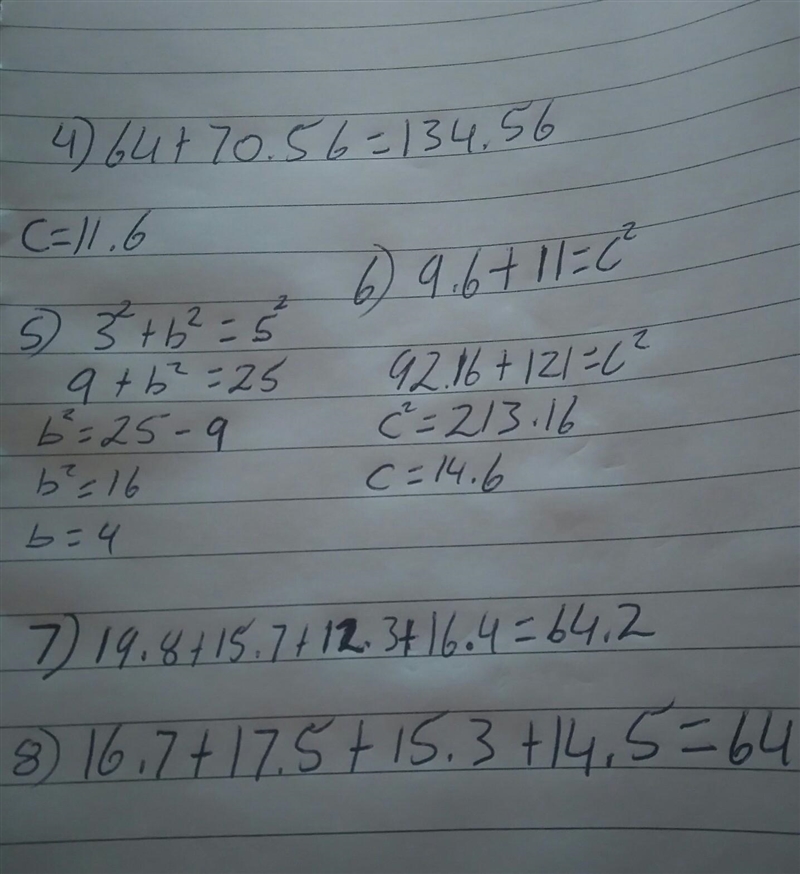 4) 64+70.56=134.56
c=11.6
5) 3²+b²=5²
9+b²=25
b²=25-9
b²=16
b=4
6) 9.6+11=c²
92.16+121=c²
c²=213.16
c=14.6
7) 19.8+15.7+12.3+16.4=64.2
8) 16.7+17.5+15.3+14.5=64